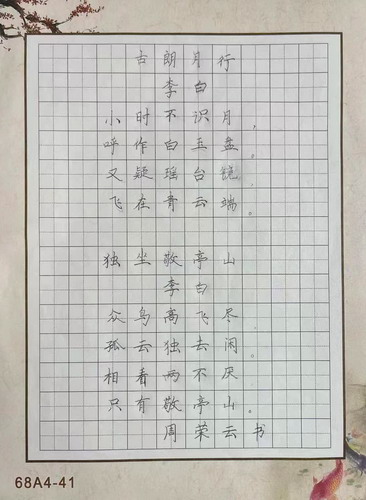 古朗月行
李白
小时不识月,
呼作白玉盘。
又疑瑶台镜,
飞在青云端。
独坐敬亭山
李白
众鸟高飞尽
孤云独去闲。
相看两不厌
只有敬亭山。
周荣云书
68A4-41